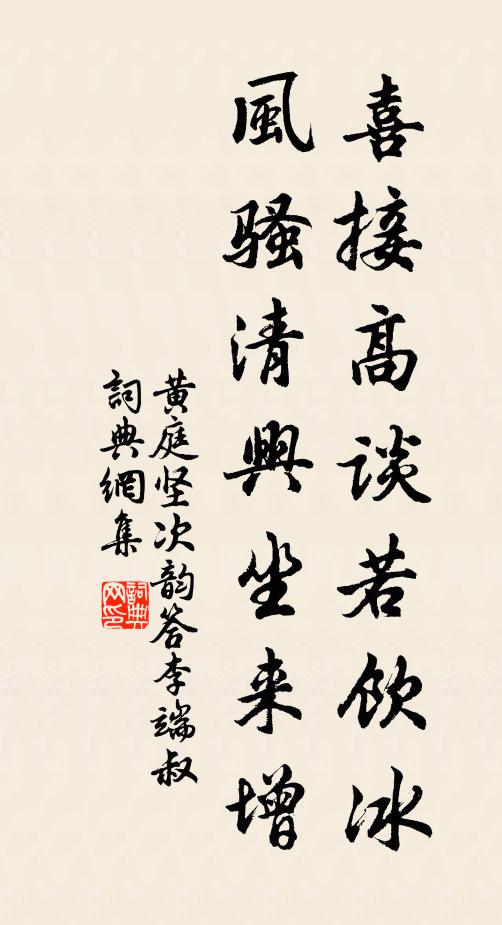 喜接高谈若饮冰
風骚清興坐来增
黄庭坚次韵答李端叔
詞典網集
詞典网印